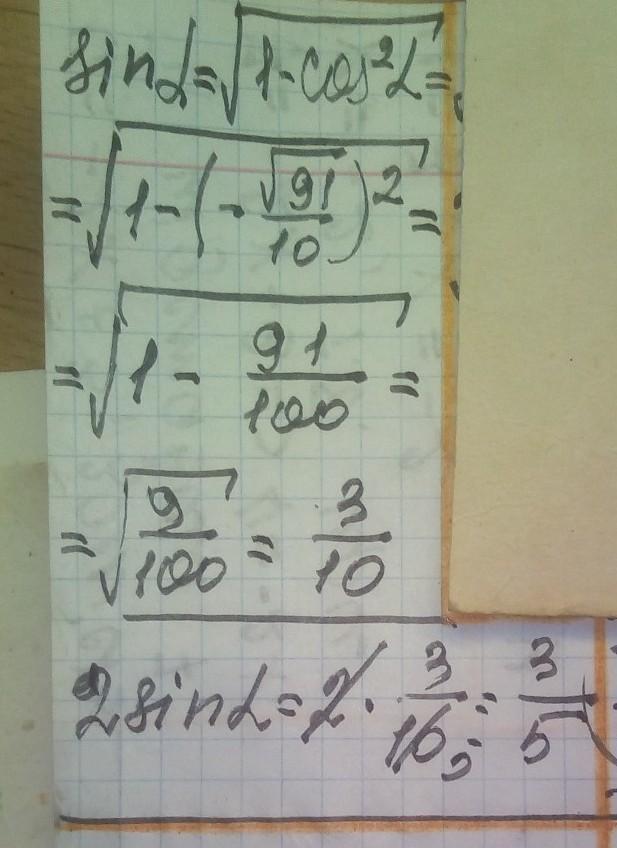 sin α = √(1 - cos² α) =
= √(1 - (- √91/10)²) =
= √(1 - 91/100) =
= √(9/100) = 3/10
2 sin α = 2 · 3/10 5 = 3/5